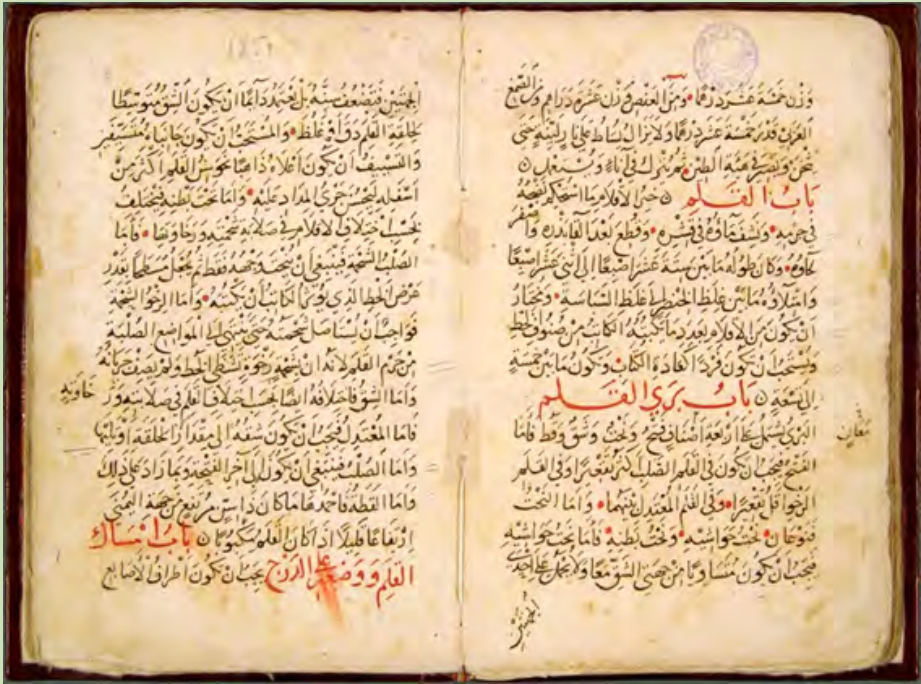 وزن خمسة عشر درهما ومن العفص وزن عشرة دراهم ومن الصمغ
العربي قدر خمسة عشر درهما ولا تزال تساط على نار لينة حتى
تثخن وتصير في هيئة الطين ثم يترك في اناء ويستعمل
باب القلم خير الاقلام ما استحكم نضجه
في جرمه ونشف ماؤه في قشره وقطع بعد واصفر
لحاؤه وكان طوله ما بين ستة عشر اصبعا الى اثني عشر اصبعا
وامتلاؤه ما بين غلظ الى غلظ السبابة ويختار
ان يكون من الاقلام بعدد ما يكتبه الكاتب من صنوف الخط
ويستحب ان تكون فردا لعادة الكتاب وتكون ما بين خمسة
الى تسعة باب بري القلم
البري يشتمل على اربعة اصناف فتح ونحت وشق وقط فاما
الفتح فيجب ان يكون في القلم الصلب اكثر تقعيرا وفي القلم
الرخو اقل تقعيرا وفي القلم المعتدل بينهما واما النحت
فنوعان نحت حواشيه ونحت بطنه فاما نحت حواشيه
فيجب ان يكون متساويا من جهتي الشق معا ولا يحمل على احدى
الجهتين
الجهتين فتضعف سنه بل يعتمد دائما ان يكون الشق متوسطا
لجلفة القلم دق او غلظ والمستحب ان يكون جانباه
والتسييف ان يكون اعلاه ذاهبا نحو رأس القلم اكثر من
اسفله ليحسن جري المداد عليه واما نحت بطنه فيختلف
بحسب اختلاف الاقلام في صلابة شحمته ورخاوتها فاما
الصلب الشحمة فينبغي ان ينحت وجهه فقط ثم يجعل مسطحا بقدر
عرض الخط الذي يؤثر الكاتب ان يكتبه واما الرخو الشحمة
فواجب ان تستاصل شحمته حتى ينتهي الى المواضع الصلبة
من جرم القلم لانه ان شحمه رخوة تشظى الخط ولم يصف جريانه
واما الشق فاختلافه ايضا بحسب اختلاف القلم في صلابته
فاما المعتدل فيجب ان يكون شقه الى مقدار الجلفة او ثلثها
واما الصلب فينبغي ان يكون الى آخر الفتحة وبما زاد على ذلك
واما القطة فاحمدها ما كان ذا سن مرتفع من جهة اليمنى
ارتفاعا قليلا اذا كان القلم مكبوبا باب امساك
القلم ووضعه على الدرج يجب ان تكون اطراف الاصابع